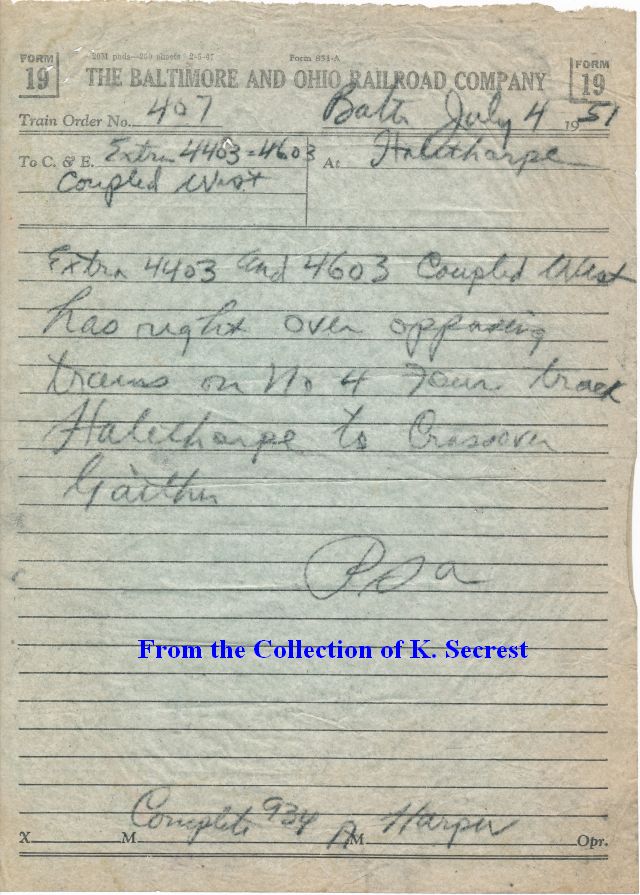 FORM 19
20M pads—200 sheets 2-5-47 Form 831-A
FORM 19
THE BALTIMORE AND OHIO RAILROAD COMPANY
Train Order No. 407 Balto July 4 1951
To C. & E. Extra 4403-4603 At Halethorpe
Coupled West
Extra 4403 and 4603 Coupled West
has right over opposing
trains on No 4 Four track
Halethorpe to Crossover
Gaither
From the Collection of K. Secrest
X. M. Complete 934 A M. Harper Opr.